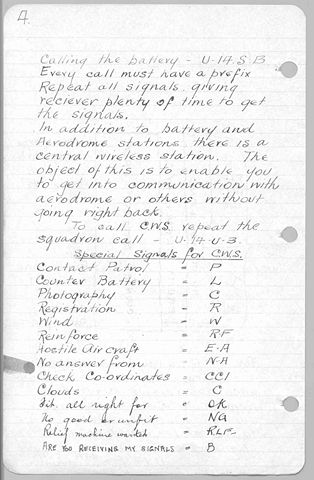 4.
Calling the battery - U-14.S.B
Every call must have a prefix
Repeat all signals, giving
reciever plenty of time to get
the signals.
In addition to battery and
Aerodrome stations there is a
central wireless station. The
object of this is to enable you
to get into communication with
aerodrome or others without
going right back.
To call C.W.S. repeat the
squadron call - U-14-U-3.
Special Signals for C.W.S.
Contact Patrol = P
Counter Battery = L
Photography = C
Registration = R
Wind = W
Reinforce = RF
Hostile Air craft = E-A
No answer from = N-A
Check Co-ordinates = CCI
Clouds = C
all right for = OK
No good or unfit = NG
Relief machine wanted = RLF-
ARE YOU RECEIVING MY SIGNALS = B